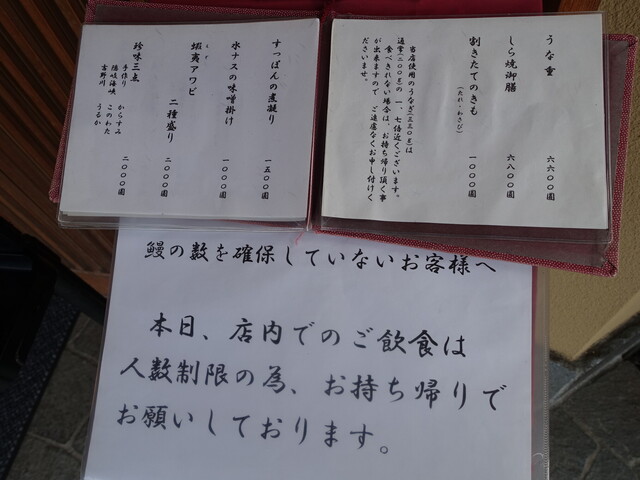 うな重 六六〇〇円
しら焼御膳 六八〇〇円
割きたてのきも 一〇〇〇円
(たれ・わさび)
当店使用のうなぎ(三三〇g)は
通常(二〇〇g)の一、七倍近くございます。
食べきれない場合は、お持ち帰り頂く事
が出来ますので、ご遠慮なくお申し付けく
ださいませ。
すっぽんの煮凝り 一五〇〇円
水ナスの味噌掛け 一〇〇〇円
蝦夷アワビ 二種盛り 二〇〇〇円
珍味三点 二〇〇〇円
手作り からすみ
隠岐海峡 このわた
吉野川 うるか
鰻の数を確保していないお客様へ
本日、店内でのご飲食は
人数制限の為、お持ち帰りで
お願いしております。